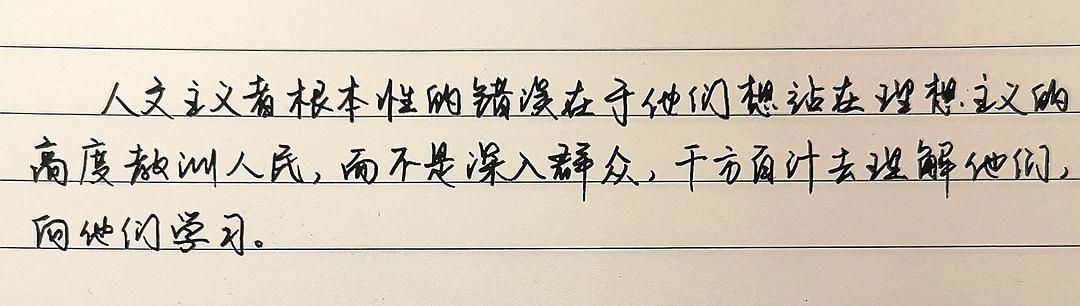 人文主义者根本性的错误在于他们想站在理想主义的
高度教训人民，而不是深入群众，千方百计去理解他们，
向他们学习。